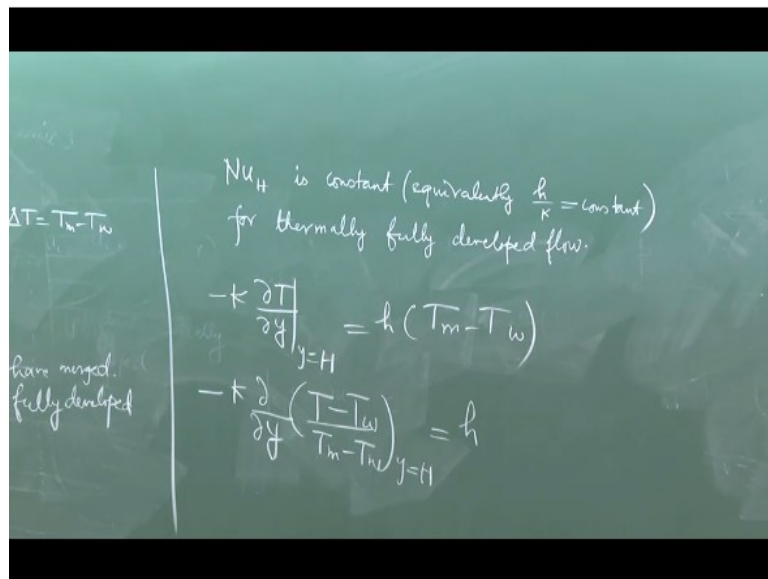 ΔT = Tm - Tw
have merged.
fully developed
NuH is constant (equivalently h/k = constant)
for thermally fully developed flow.
-k ∂T/∂y|y=H = h (Tm - Tw)
-k ∂/∂y (T - Tw / Tm - Tw)y=H = h